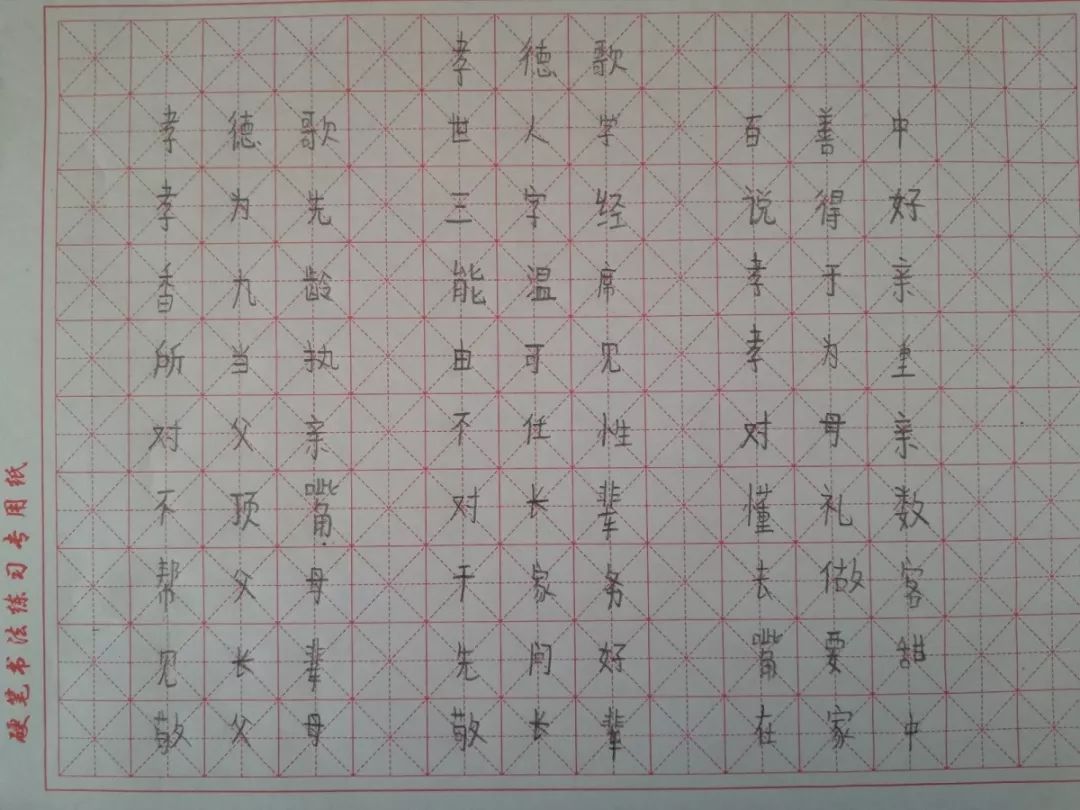 孝德歌
孝德歌 世人学 百善中
孝为先 三字经 说得好
香九龄 能温席 孝于亲
所当执 由可见 孝为重
对父亲 不任性 对母亲
不顶嘴 对长辈 懂礼数
帮父母 干家务 去做客
见长辈 先问好 嘴要甜
敬父母 敬长辈 在家中
硬笔书法练习专用纸